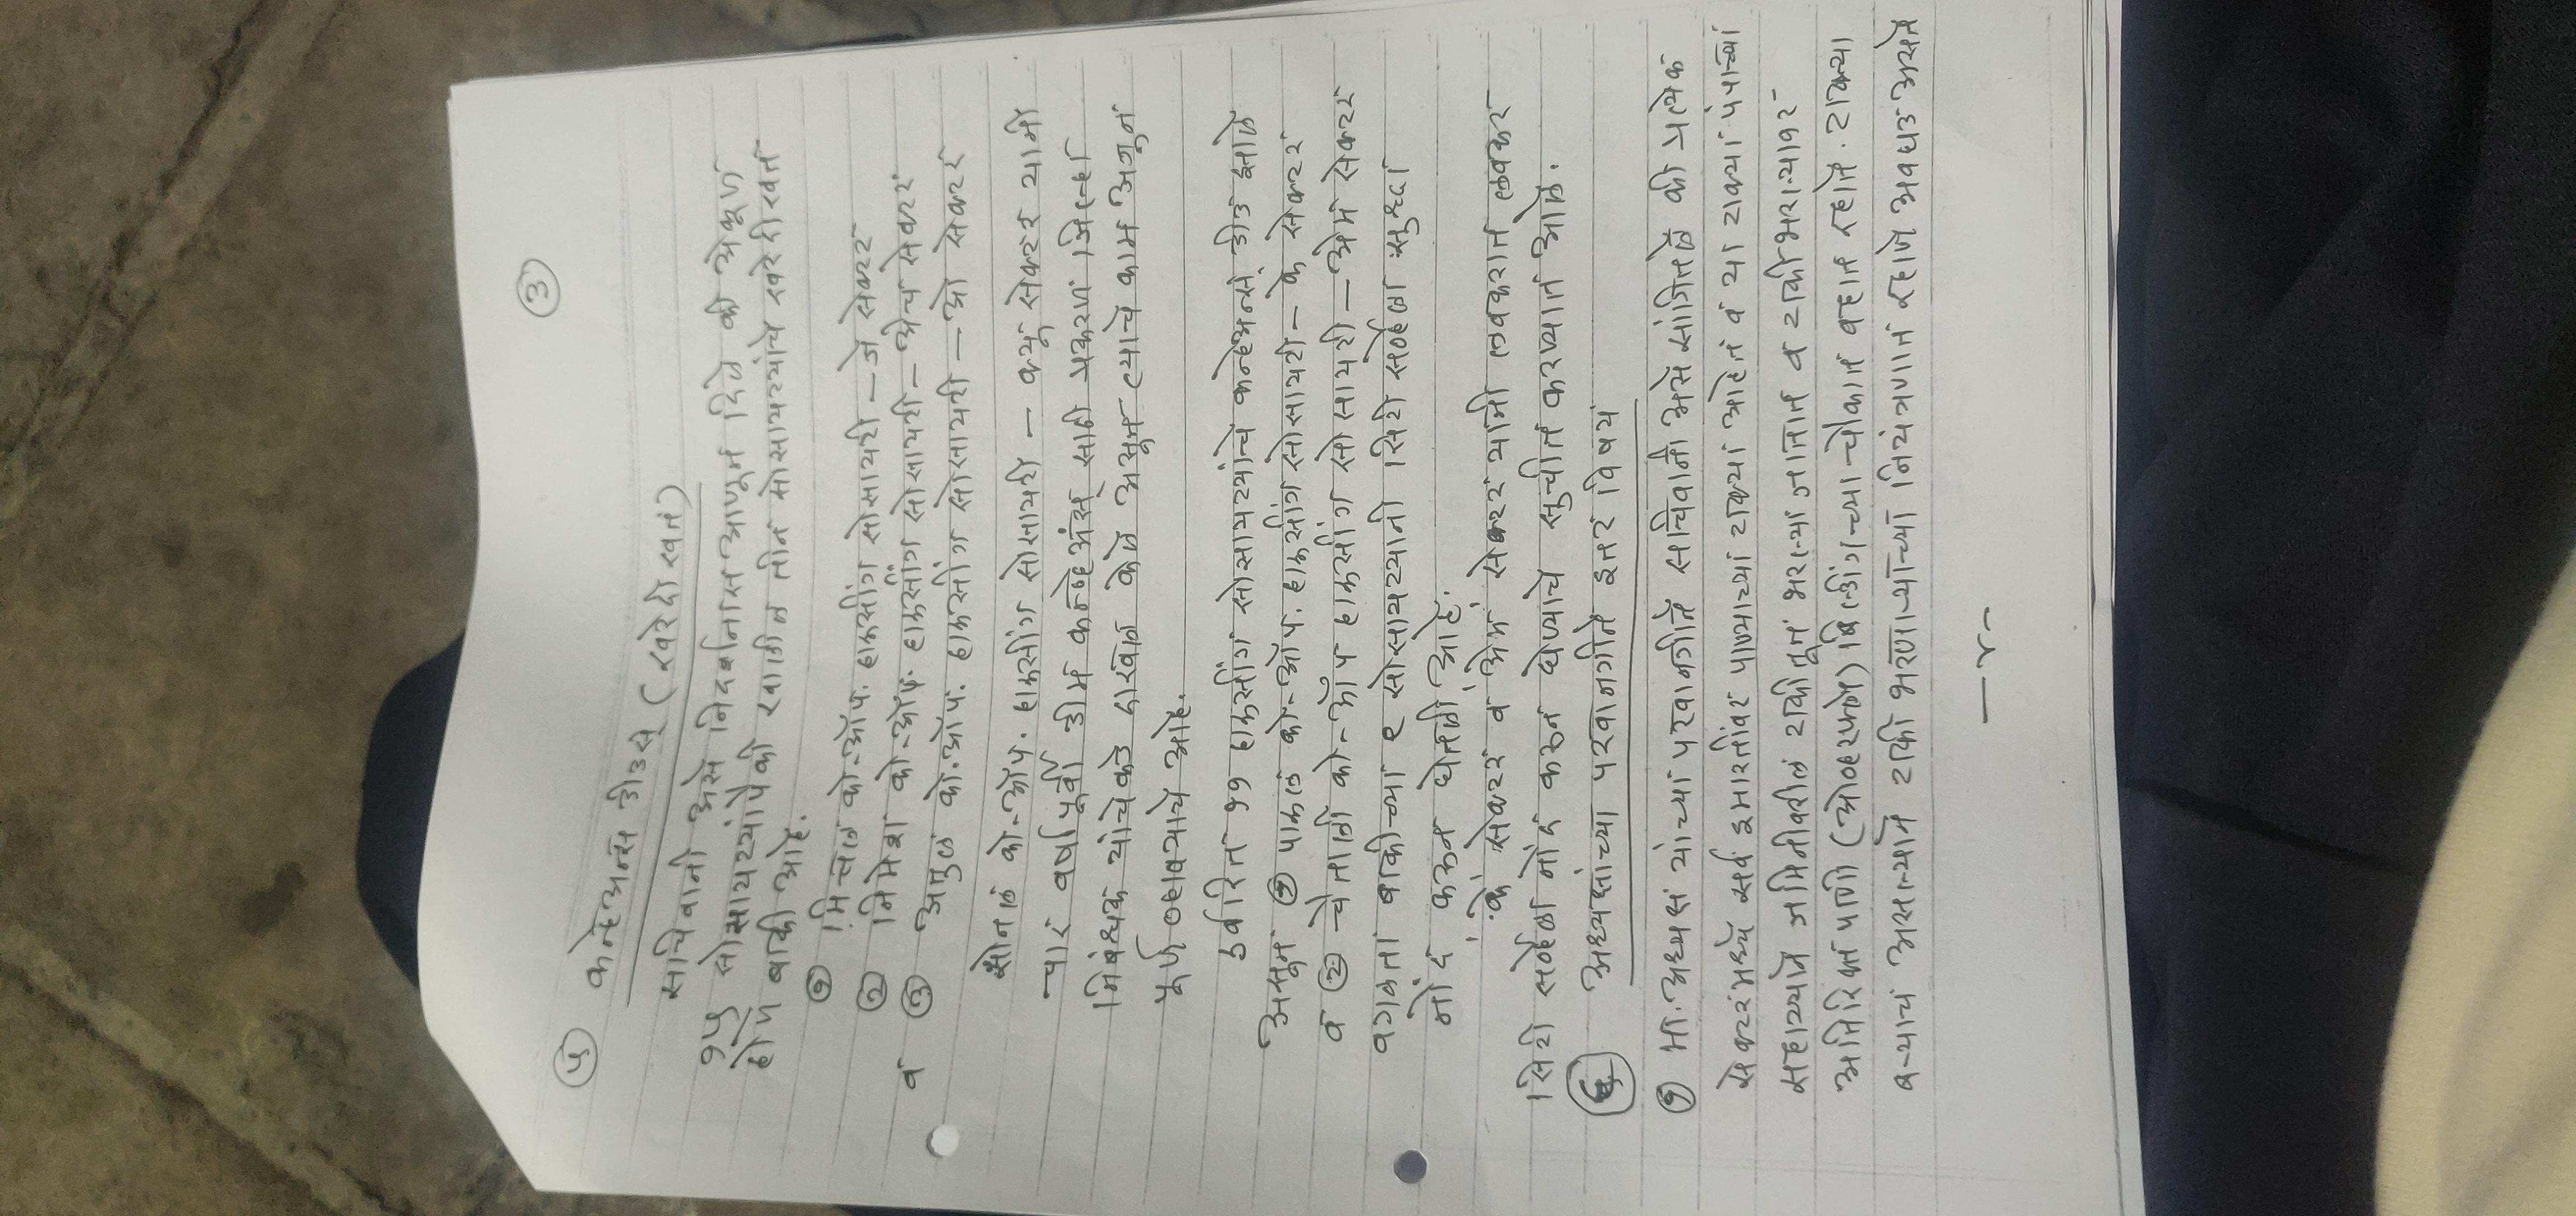 ३
५ कन्हेअन्स डीडस् (खरेदीखत)
सचिवानी असे निदर्शनास आणून दिले की अेकूण
१५ सोसायट्यांपैकी खालील तीन सोसायट्यांचे खरेदीखत
होणे बाकी आहे.
१ मित्तल को-ऑप. हाऊसींग सोसायटी – जे सेक्टर
२ निमेश को-ऑप. हाऊसींग सोसायटी – अेच सेक्टर
व ३ अतुल को.ऑप. हाऊसींग सोसायटी – ओ सेक्टर
सोनल को-ऑप. हाऊसींग सोसायटी – क्यू सेक्टर यानी
चार वर्षापूर्वी डीम कन्व्हेअंस् साठी प्रकरण जिल्हा
निबंधक यांचेकडे दाखल केले असून त्याचे काम अजून
पूर्ण व्हावयाचे आहे.
उर्वरित ११ हाऊसींग सोसायट्यांचे कन्हेअन्स् डीड झाले
असून १ पाऊल को-ऑप. हाऊसींग सोसायटी – के सेक्टर
व २ चैताली को-ऑप हाऊसींग सोसायटी – अेम सेक्टर
वगळता बाकीच्या ९ सोसायट्यानी सिटी सर्व्हेला सुध्दा
नोंद करून घेतली आहे.
'के' सेक्टर व 'अेम' सेक्टर यांनी लवकरात लवकर
सिटी सर्व्हेला नोंद करून घेण्याचे सुचीत करण्यात आले.
६ अध्यक्षांच्या परवानगीने इतर विषय
१ मा. अध्यक्ष यांच्या परवानगीने सचिवानी असे सांगितले की प्रत्येक
सेक्टरमध्ये सर्व इमारतींवर पाण्याच्या टाक्या आहेत व या टाक्या पंपाच्या
सहाय्याने जमिनीवरील टाकीतून भरल्या जातात व टाकी भरल्यावर
अतिरिक्त पाणी (ओव्हरफ्लो) बिल्डींगच्या चौकात वहात रहाते. टाक्या
बऱ्याच असल्याने टाकी भरणाऱ्यांच्या नियंत्रणात रहाणे अवघड असते
—४—